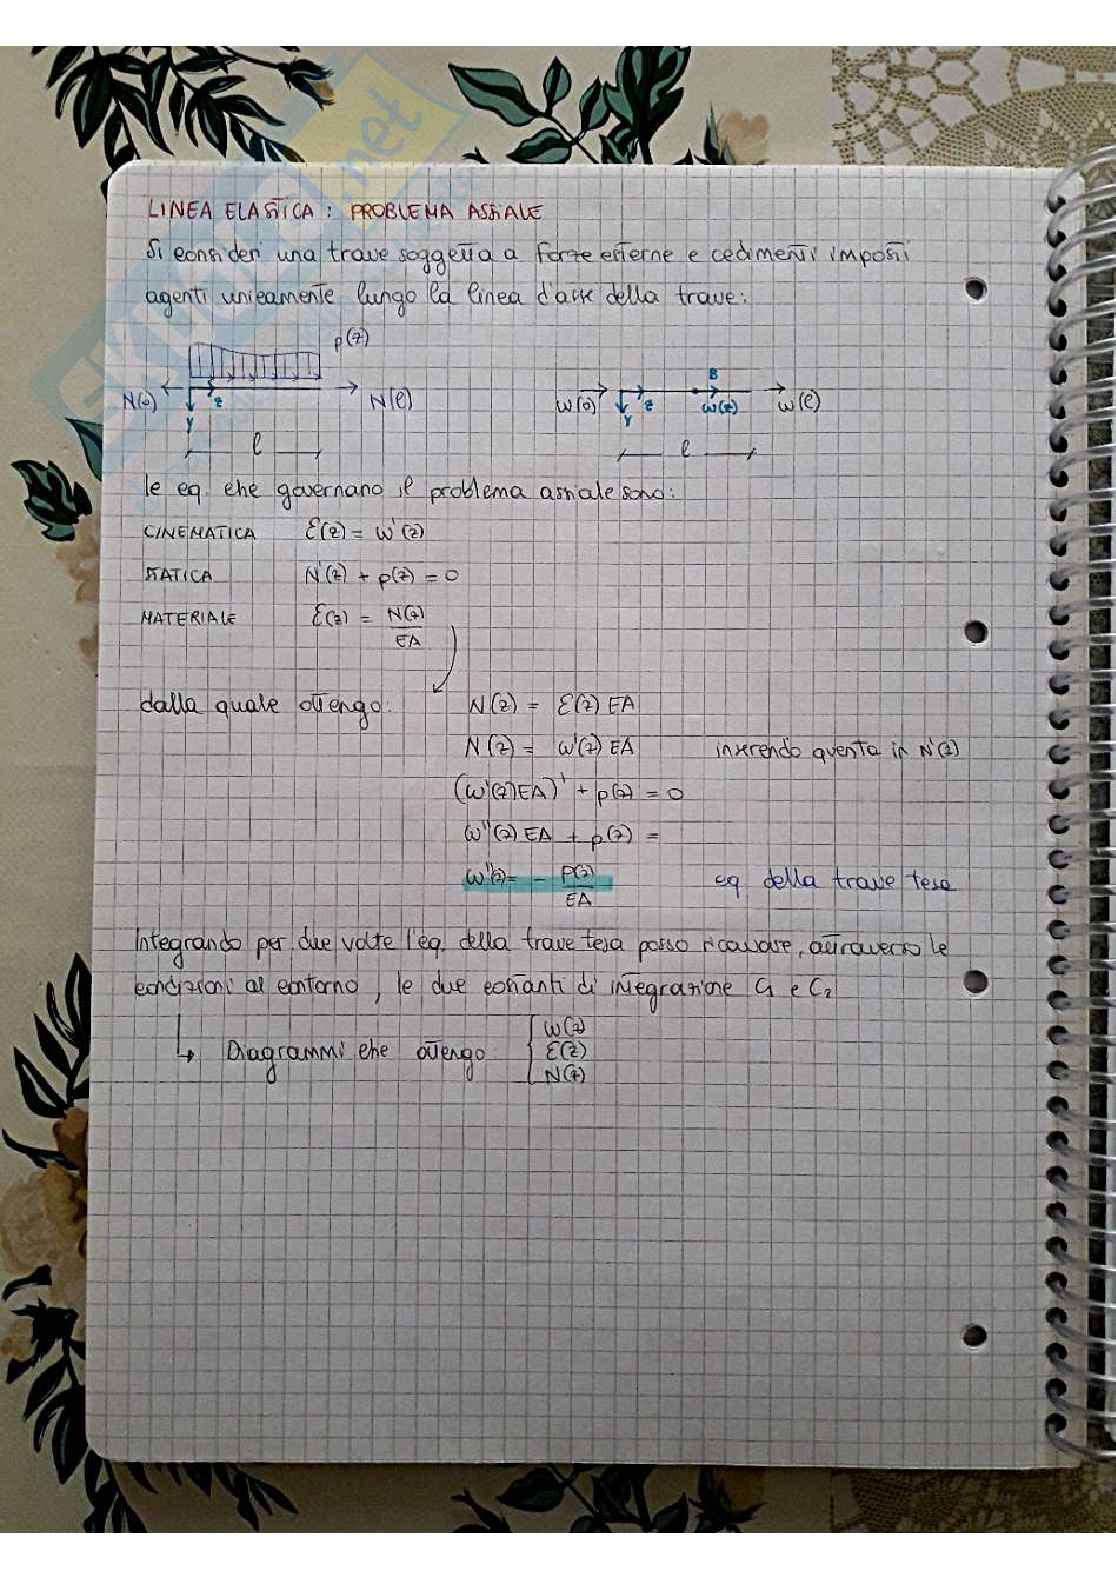 LINEA ELASTICA: PROBLEMA ASSIALE
Si consideri una trave soggetta a forze esterne e cedimenti imposti
agenti unicamente lungo la linea d'asse della trave:
p(z)
N(0) z N(l)
y
l
B
w(0) z w(z) w(l)
y
l
le eq. che governano il problema assiale sono:
CINEMATICA ε(z) = w'(z)
STATICA N'(z) + p(z) = 0
MATERIALE ε(z) = N(z)/EA
dalla quale ottengo: N(z) = ε(z) EA
N(z) = w'(z) EA inserendo questa in N'(z)
(w'(z)EA)' + p(z) = 0
w''(z) EA + p(z) =
w''(z) = - p(z)/EA eq della trave tesa
Integrando per due volte l'eq. della trave tesa posso ricavare, attraverso le
condizioni al contorno, le due costanti di integrazione C1 e C2
↳ Diagrammi che ottengo: { w(z)
ε(z)
N(z)
SKUOLA.net